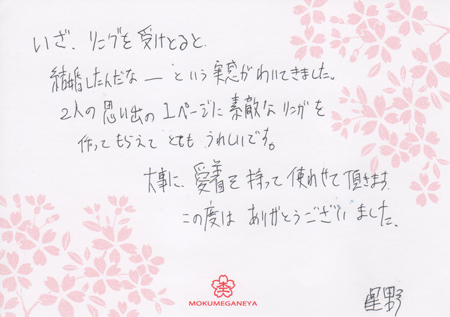 いざ、リングを受けとると、
結婚したんだなーという実感がわいてきました。
2人の思い出の1ページに素敵なリングを
作ってもらえてとてもうれしいです。
大事に、愛着を持って使わせて頂きます。
この度はありがとうございました。
星野
MOKUMEGANEYA